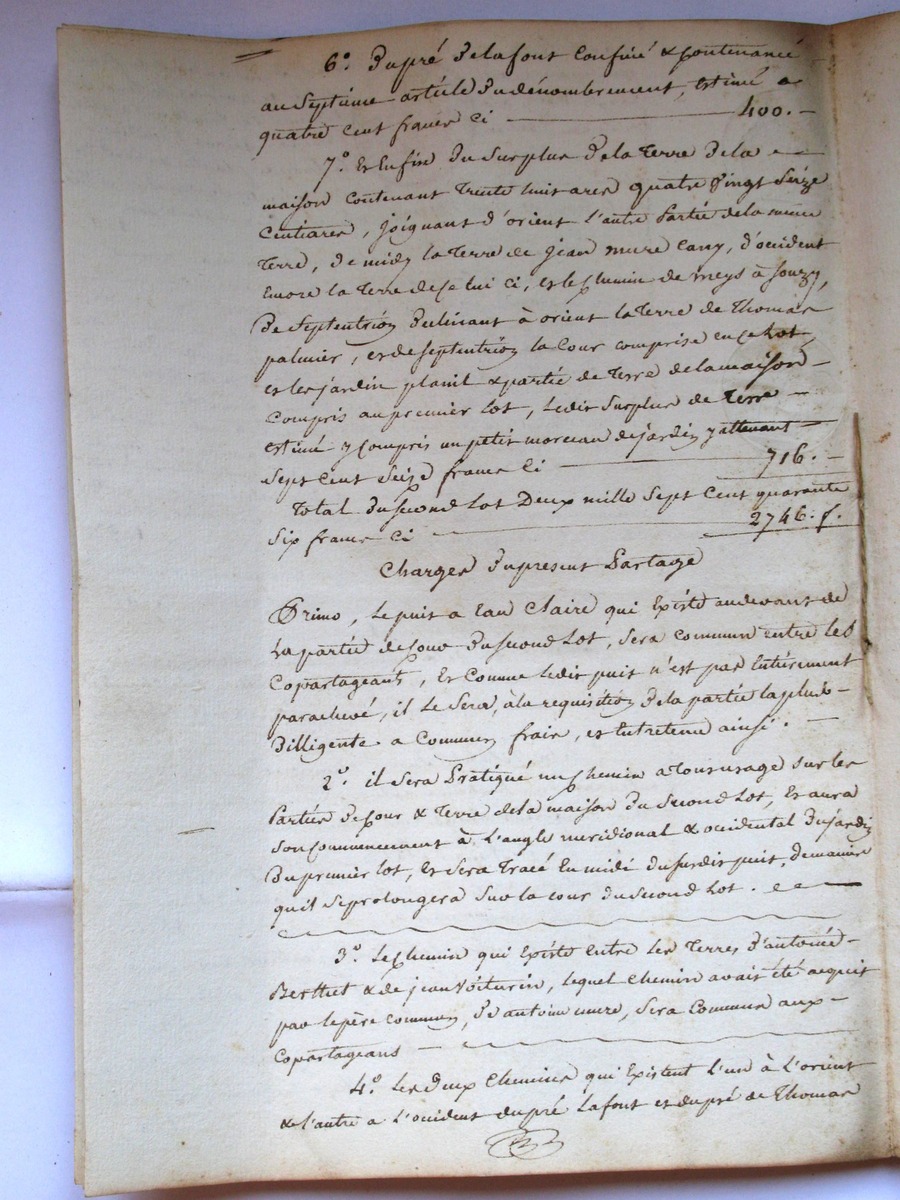 6°. Dupré Delafont Confiné & Contenancé
au Septième article Du dénombrement, Estimé a
quatre Cent francs Ci — 400. -
7° Et Enfin Du Surplus De la Terre De la
maison Contenant Trente huit ares quatre Vingt Seize
Centiares, joignant d'orient l'autre Partie de la même
Terre, De midy la Terre de jean mure Cany, d'occident
Encore la Terre de Celui Ci, et le Chemin de meys à Souzy,
De Septentrion Déclinant à orient la Terre de Thomas
palmier, et de Septentrion la Cour comprise en Ce Lot,
et les jardin planit & partie de Terre de la maison
Compris au premier Lot, Ledit Surplus de Terre
estimé y Compris un petit morceau de jardin y attenant
Sept Cent Seize francs Ci — 716. -
Total Du Second Lot Deux mille Sept Cent quarante
Six francs Ci — 2746. f.
Charges Du present Partage
Primo, Le puit a Eau Claire qui Existe au devant de
La partie de Cour Du Second Lot, Sera commun entre les
Copartageants, Et Comme Ledit puit n'est pas Entièrement
parachevé, il Le Sera, à la requisition De la partie la plus
Dilligente a Commun frais, et Entretenu ainsi. -
2°. il Sera Pratiqué un Chemin a Tous usage Sur les
Parties de Cour & Terre de la maison Du Second Lot, Et aura
Son Commencement à L'angle méridional & occidental Du jardin
Du premier Lot, Et Sera Tracé En midi Du Susdit puit, De manière
qu'il Se prolongera Sur la Cour du Second Lot.
3°. Le Chemin qui Existe entre les Terres D'antoine
Berthet & de jean Voiturin, lequel Chemin avait été acquit
par le père Commun, D'antoine mure, Sera Commun aux
Copartageans
4°. Les Deux Chemins qui Existent L'un à L'orient
& l'autre a L'occident du pré Lafont et du pré de Thomas